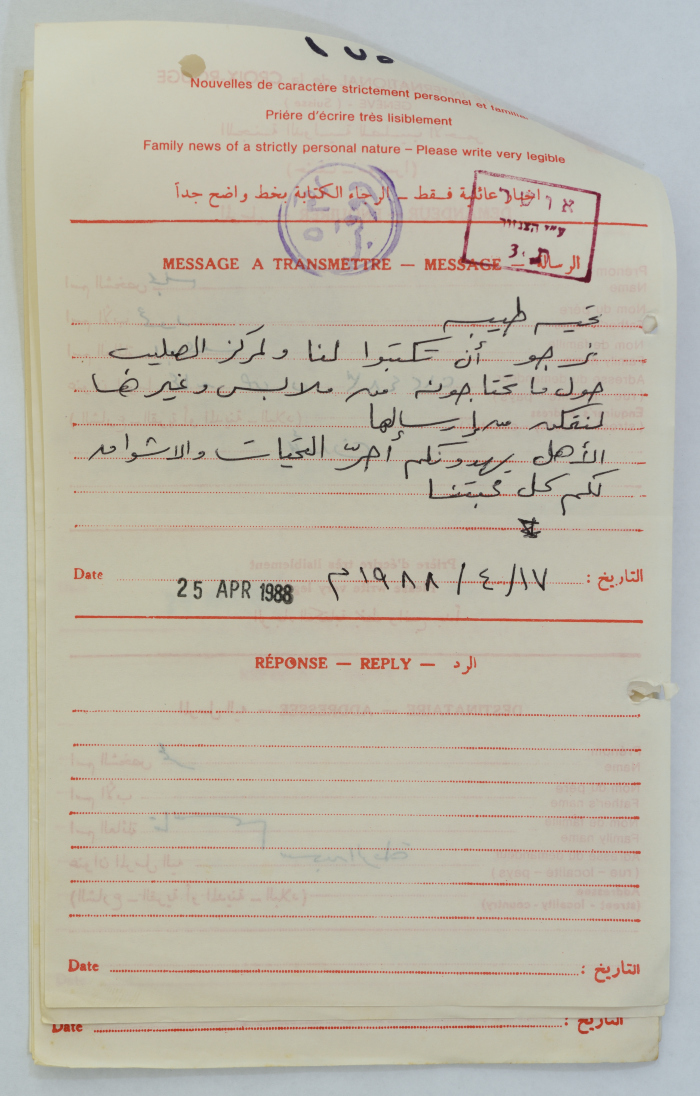 ١٧٥
Nouvelles de caractére strictement personnel et familial
Priére d'écrire très lisiblement
Family news of a strictly personal nature – Please write very legible
اخبار عائلية فقط – الرجاء الكتابة بخط واضح جداً
אושר
ע״י הצנזור
MESSAGE A TRANSMETTRE — MESSAGE — الرسالة
تحية طيبه
نرجو أن تكتبوا لنا ولمركز الصليب
حول ما تحتاجونه من ملابس وغيرها
لنتمكن من إرسالها
الأهل يهدونكم أحرّ التحيات والاشواق
لكم كل محبتنا
Date التاريخ : ١٧ / ٤ / ١٩٨٨ م
25 APR 1988
RÉPONSE — REPLY — الرد
Date التاريخ :
Date التاريخ :